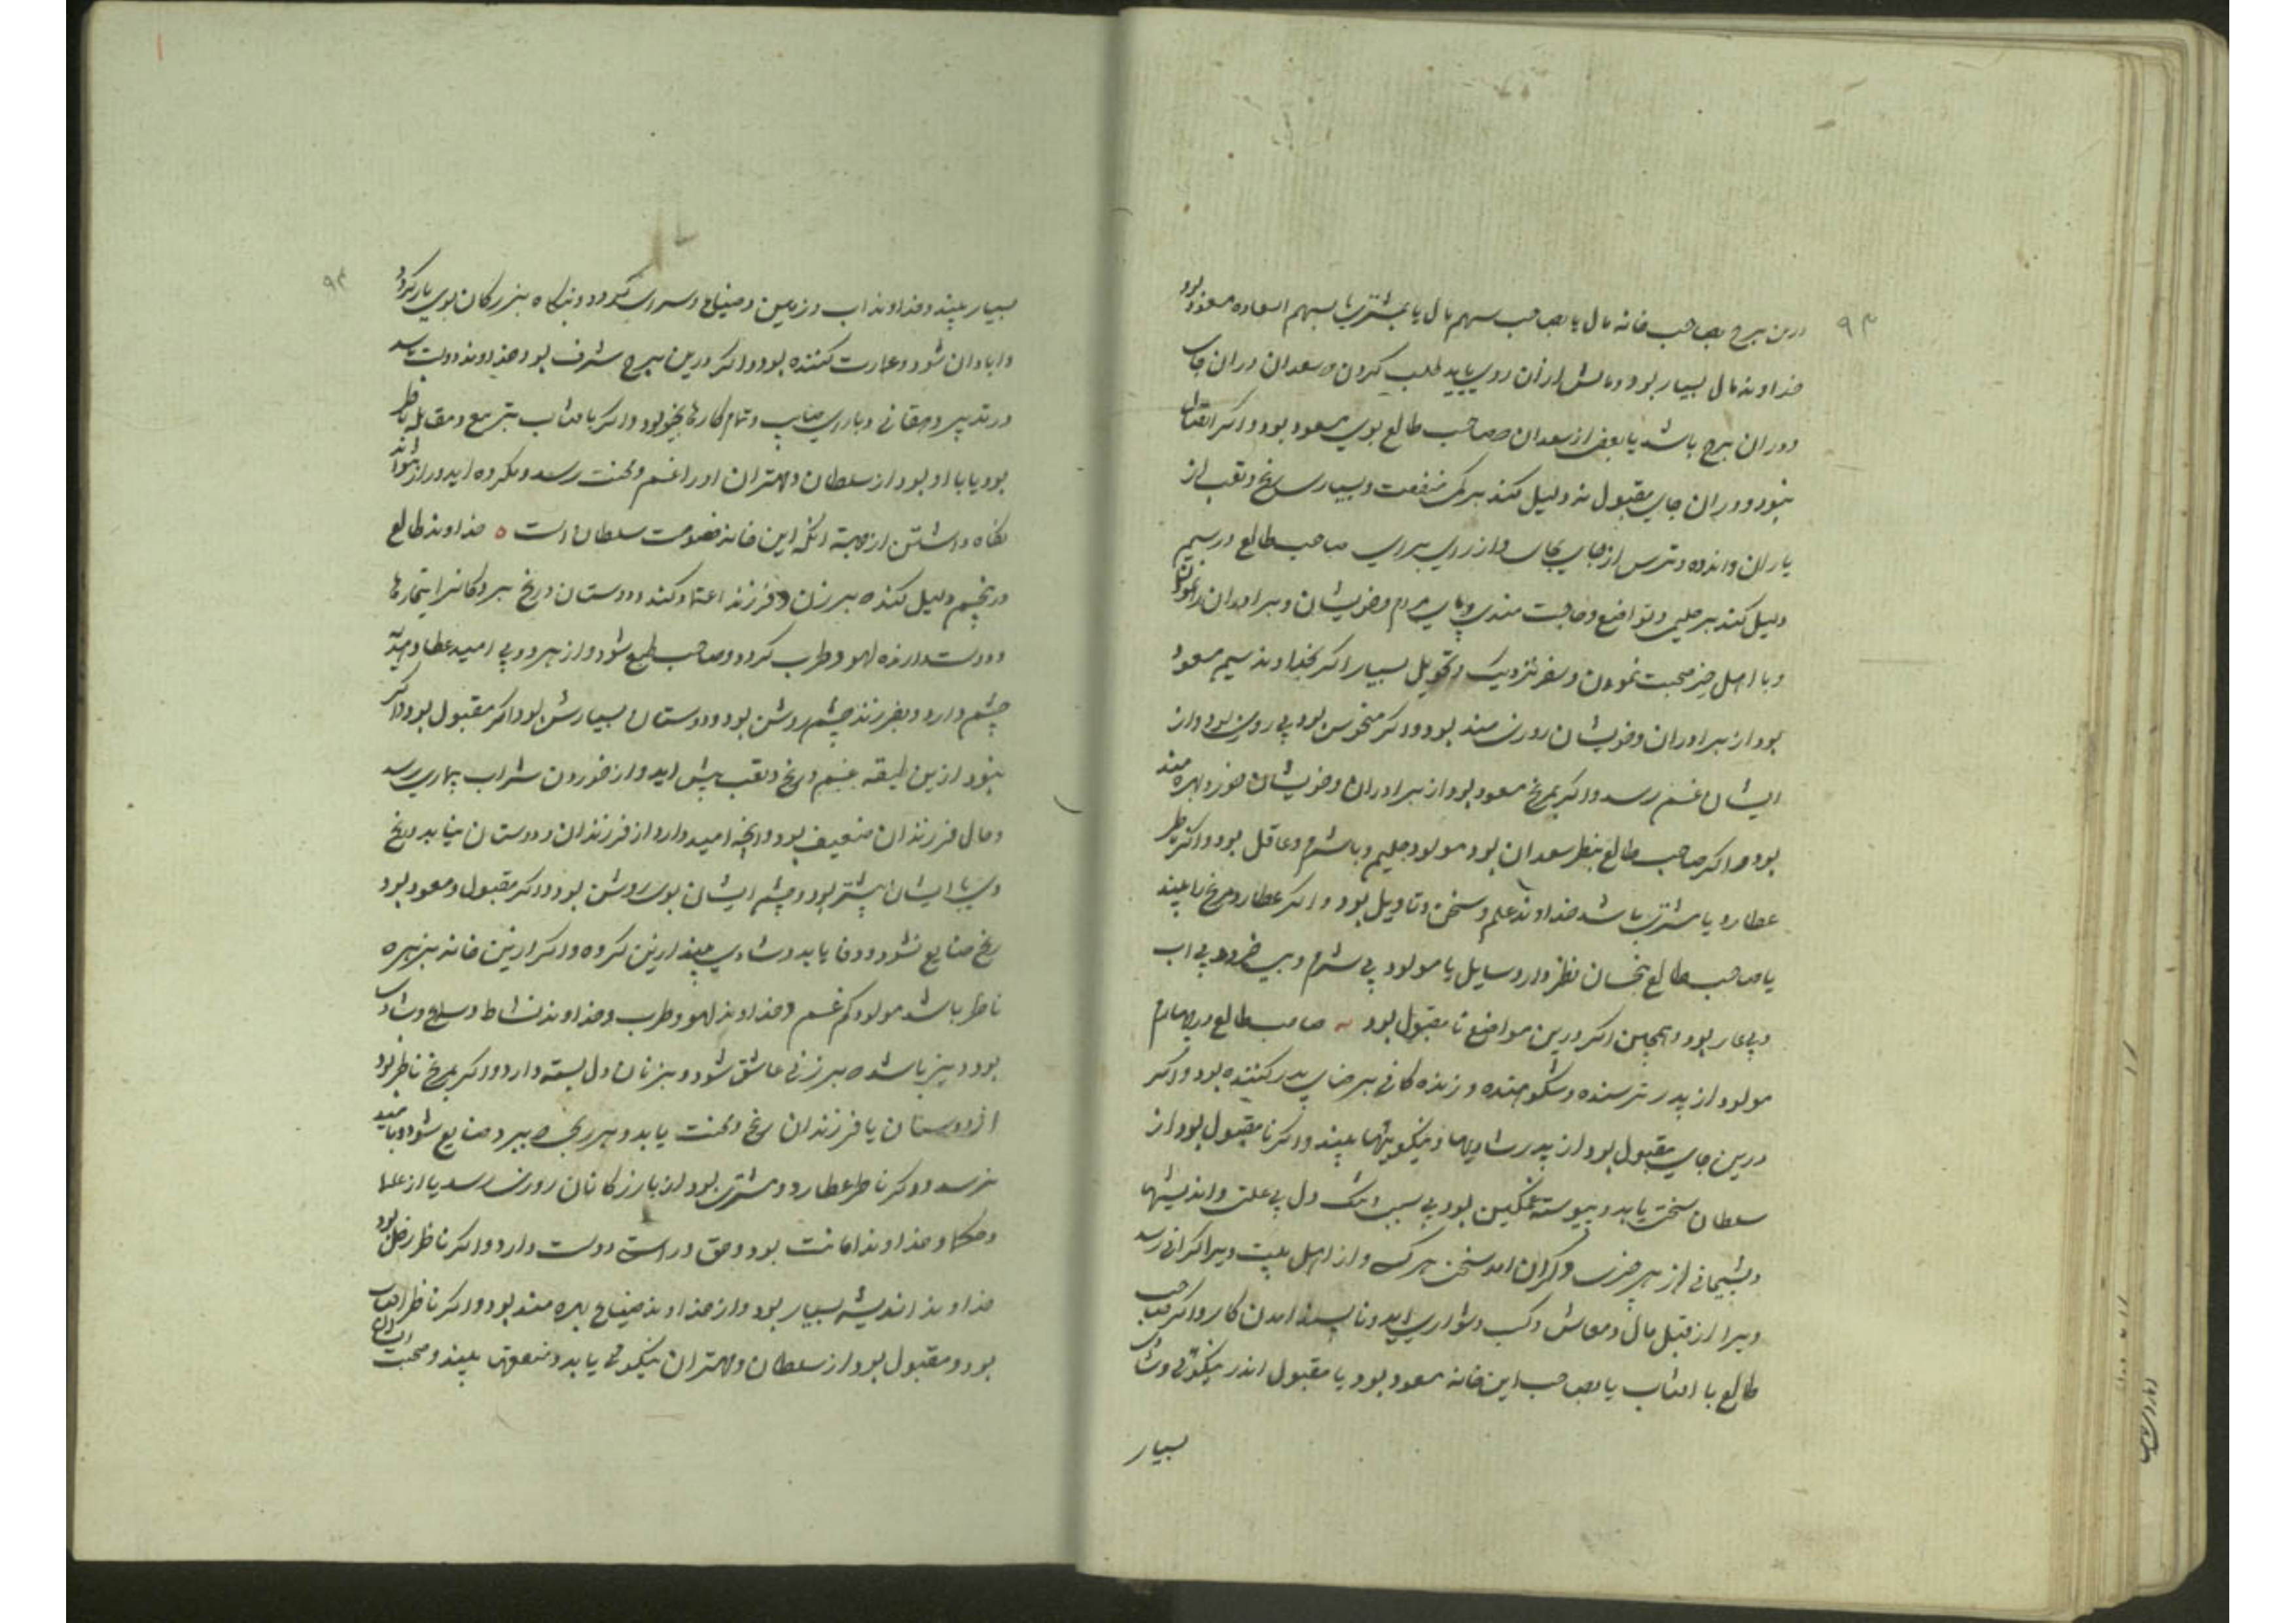 ۹۳
درین برج بصاحب خانه مال یا بصاحب سهم مال یا بمشتری یا بسهم السعاده مسعود بود
خداوند مال بسیار بود و مالش از آن روی باید طلب کردن که سعدان در آن جای
و در آن برج باشد یا بعضی از سعدان که صاحب طالع بوی مسعود بود و اگر اتصال
نبود و در آن جای مقبول نه دلیل کند بر کمی منفعت و بسیاری رنج و تعب از
یاران و اندوه و ترس از جای بجای و از رای برای صاحب طالع در سیم
دلیل کند بر حلیمی و تواضع و حاجت مندی مردم و خویشان و برادران
و با اهل خیر صحبت نمودن و سفر نزدیک و تحویل بسیار اگر بخداوند سیم مسعود
بود از برادران و خویشان روزی مند بود و اگر منحوس بود بی روزی بود و از
ایشان غم رسد و اگر بمریخ مسعود بود از برادران و خویشان خود بهره مند
بود و اگر صاحب طالع بنظر سعدان بود مولود حلیم و باشرم و عاقل بود و اگر ناظر
عطارد یا مشتری باشد خداوند علم و سخن و تاویل بود و اگر عطارد مریخ را بیند
یا صاحب طالع بنحسان نظر دارد مولود بی شرم و بی خرد و بی اب
و بی عار بود و همچنین اگر درین مواضع نا مقبول بود صاحب طالع در چهارم
مولود از پدر ترسنده و شکوهنده و زنده کانی بر رضای پدر کننده بود و اگر
درین جای مقبول بود از پدر شادیها و نیکویهها بیند و اگر نا مقبول بود از
سلطان سختی یابد و پیوسته غمگین بود بی سبب و تنگ دل بی علت و اندیشها
و پشیمانی از هر چیزی و گران آمد سخن هر کسی و از اهل بیت ویرا گرانی رسد
ویرا از قبل مال و معاش و کسب دشواری آید و نا پسند آمدن کار و اگر صاحب
طالع با افتاب یا بصاحب این خانه مسعود بود یا مقبول اندر نیکوئی و شادی
بسیار
۹۴
بسیار بیند و خداوند آب و زمین و ضیاع و سرای گردد و بنگاه بزرگان بوی یار گردد
و ابادان شود و عمارت کننده بود و اگر درین برج شرف بود خداوند دولت باشد
در تدبیر دهقانی و تمام کارها بخیر بود و اگر با افتاب بتربیع و مقابله ناظر
بود یا با او بود از سلطان و مهتران او را غم و محنت رسد و مکروه آید و راز نتواند
نگاه داشتن از جهة آنکه این خانه خصومت سلطان است ه خداوند طالع
در پنجم دلیل کند که بر زن و فرزند اعتماد کند و دوستان و رنج برد
و دوستدارنده لهو و طرب گردد و صاحب طمع شود و از هر دو پی امید عطا و هدیه
چشم دارد و بفرزند چشم روشن بود و دوستان بسیارش بود اگر مقبول بود و اگر
نبود ازین طبقه غم و رنج و تعب پیش آید و از خوردن شراب بیماری رسد
و حال فرزندان ضعیف بود و آنچه امید دارد از فرزندان و دوستان نیابد و رنج
وی با ایشان بیشتر بود و چشم ایشان بوی روشن بود و اگر مقبول و مسعود بود
رنج ضایع نشود و وفا یابد و شادی بیند ازین گروه و اگر ازین خانه بزهره
ناظر باشد مولود کم غم و خداوند لهو و طرب و خداوند نشاط و سلاح و شادی
بود و نیز باشد که بر زنی عاشق شود و بزنان دل بسته دارد و اگر بمریخ ناظر بود
از دوستان یا فرزندان رنج و محنت یابد و هر رنجی که برد ضایع شود و بامید
نرسد و اگر ناظر عطارد و مشتری بود از بازرگانان روزی رسد یا از علما
و حکما و خداوند امانت بود و حق و راستی دوست دارد و اگر ناظر زحل بود
خداوند اندیشه بسیار بود و از خداوند ضیاع بهره مند بود و اگر ناظر افتاب
بود و مقبول بود از سلطان و مهتران نیکوئی یابد و منفعتها بیند و صحبت ایشان